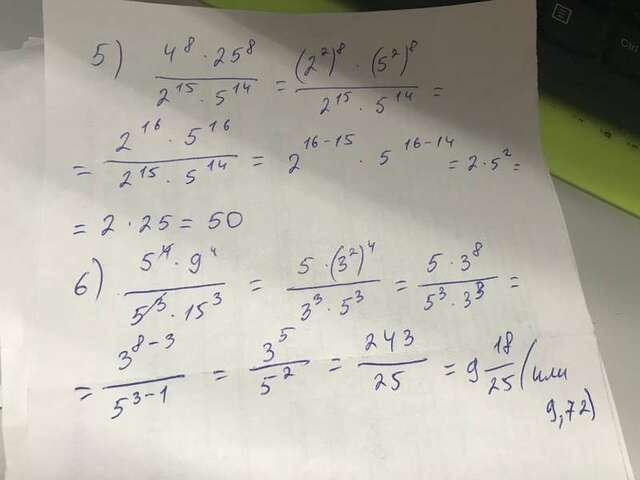 5) (4^8 · 25^8)/(2^15 · 5^14) = ((2^2)^8 · (5^2)^8)/(2^15 · 5^14) =
= (2^16 · 5^16)/(2^15 · 5^14) = 2^(16-15) · 5^(16-14) = 2·5^2 =
= 2 · 25 = 50
6) (5^4 · 9^4)/(5^3 · 15^3) = (5 · (3^2)^4)/(3^3 · 5^3) = (5 · 3^8)/(5^3 · 3^3) =
= 3^(8-3)/5^(3-1) = 3^5/5^2 = 243/25 = 9 18/25 (или
9,72)
Ctrl